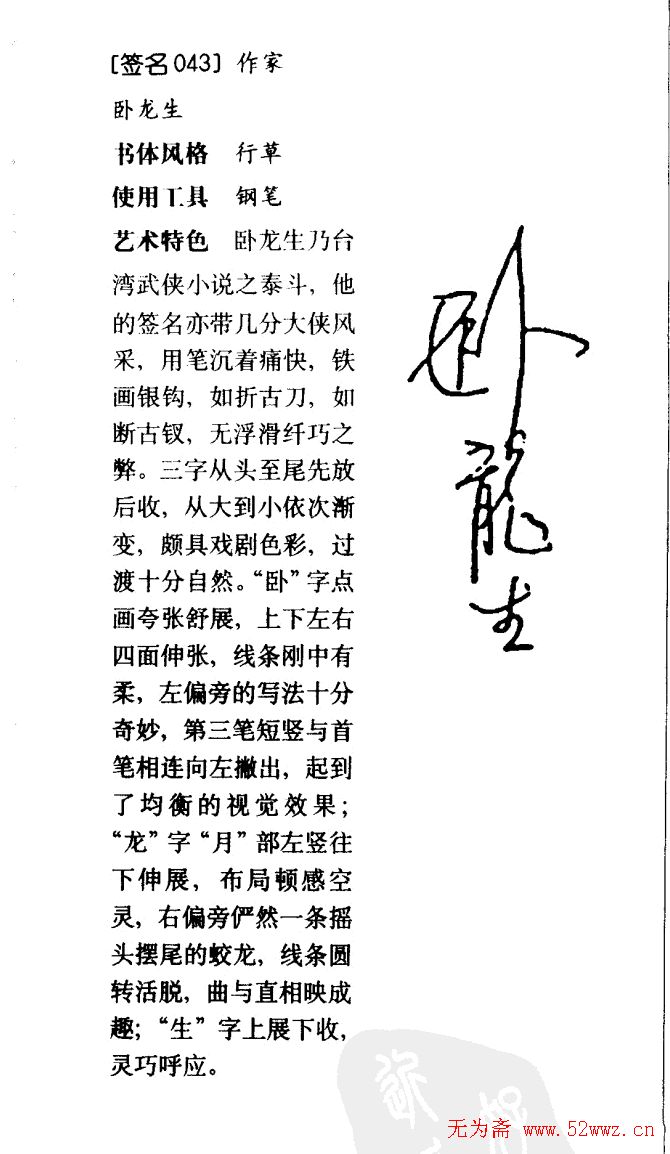 [签名043] 作家
卧龙生
书体风格 行草
使用工具 钢笔
艺术特色 卧龙生乃台
湾武侠小说之泰斗，他
的签名亦带几分大侠风
采，用笔沉着痛快，铁
画银钩，如折古刀，如
断古钗，无浮滑纤巧之
弊。三字从头至尾先放
后收，从大到小依次渐
变，颇具戏剧色彩，过
渡十分自然。“卧”字点
画夸张舒展，上下左右
四面伸张，线条刚中有
柔，左偏旁的写法十分
奇妙，第三笔短竖与首
笔相连向左撇出，起到
了均衡的视觉效果；
“龙”字“月”部左竖往
下伸展，布局顿感空
灵，右偏旁俨然一条摇
头摆尾的蛟龙，线条圆
转活脱，曲与直相映成
趣；“生”字上展下收，
灵巧呼应。
卧龍生
无为斋 www.52wwz.cn